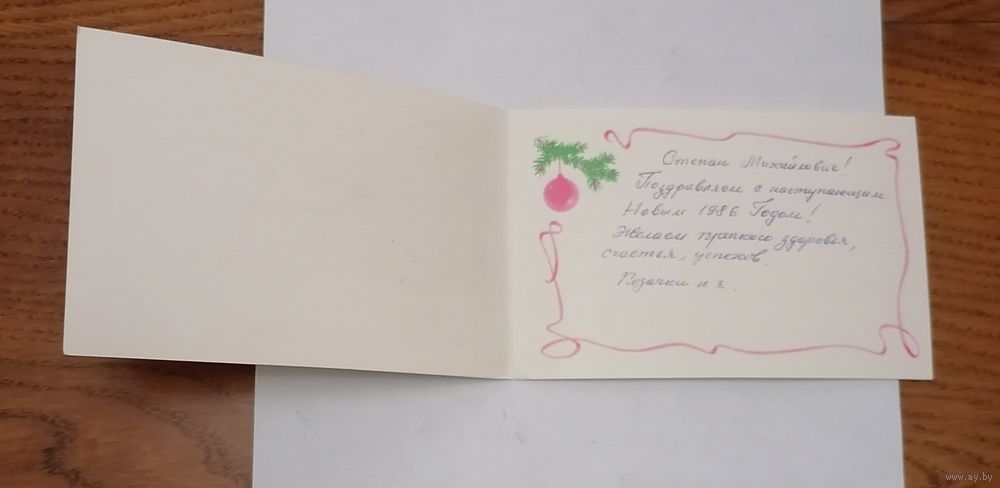 Степан Михайлович!
Поздравляем с наступающим
Новым 1986 Годом!
Желаем крепкого здоровья,
счастья, успехов.
и я.
www.ay.by